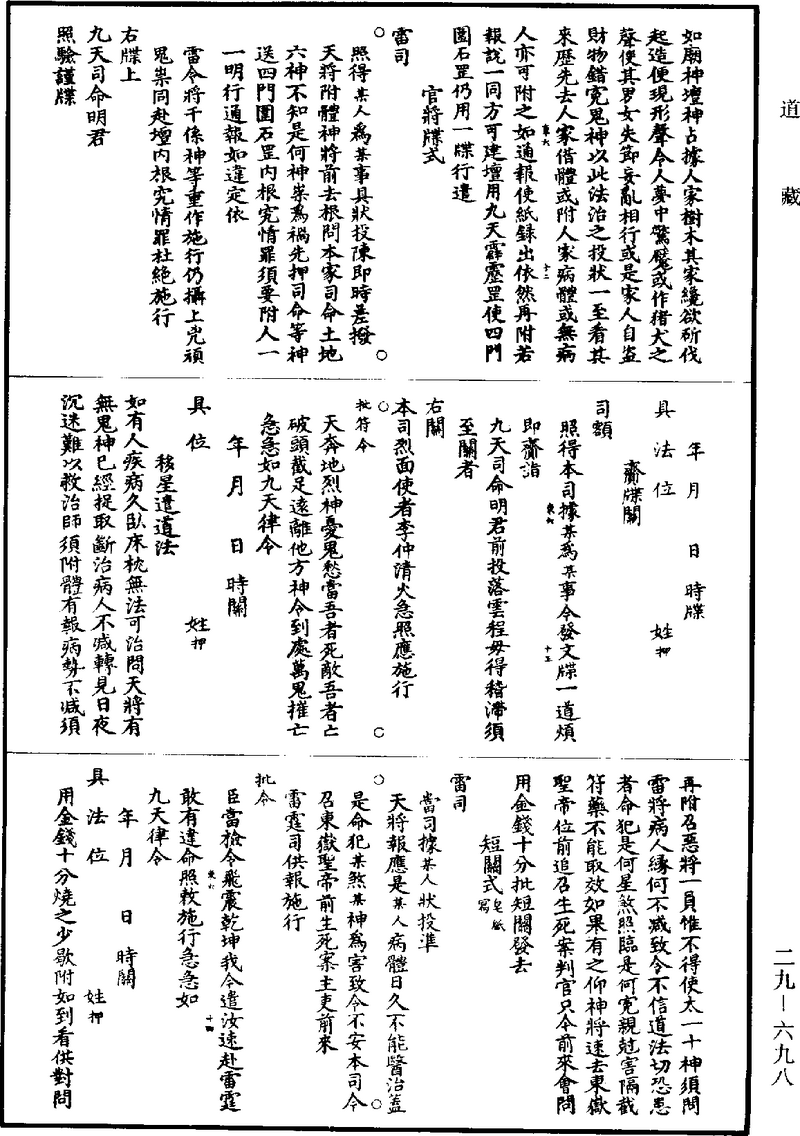 道藏
如廟神壇神占據人家樹木其家纔欲斫伐
起造便現形聲令人夢中驚魘或作猪犬之
聲使其男女失節妄亂相行或是家人自盜
財物錯寃鬼神以此法治之投狀一至看其
來歷先去人家借體或附人家病體或無病
人亦可附之如通報使紙録出依然再附若
報說一同方可建壇用九天霹靂罡使四門
圍石罡仍用一牒行遣
官將牒式
雷司
照得某人爲某事具狀投陳即時差撥
天將附體神將前去根問本家司命土地
六神不知是何神祟爲禍先押司命等神
送四門圍石罡内根究情罪須要附人一
一明行通報如違定依
雷令將干係神等重作施行仍攝上兇頑
鬼祟同赴壇内根究情罪杜絶施行
右牒上
九天司命明君
照驗謹牒
年月日時牒
具法位姓押
齎牒關
司額
照得本司據某爲某事今發文牒一道煩
即齎詣
九天司命明君前投落雲程毋得稽滯須
至關者
右關
本司烈面使者李仲清火急照應施行
批符令
天奔地烈神憂鬼愁當吾者死敵吾者亡
破頭截足遠離他方神令到處萬鬼摧亡
急急如九天律令
年月日時關
具位姓押
移星遣道法
如有人疾病久臥床枕無法可治問天將有
無鬼神已經捉取斷治病人不減轉見日夜
沉迷難以救治師須附體有報病勢不減須
再附召惡將一員惟不得使太一十神須問
雷將病人緣何不減致令不信道法切恐患
者命犯是何星煞照臨是何寃親尅害隔截
符藥不能取效如果有之仰神將速去東嶽
聖帝位前追召生死案判官只今前來會問
用金錢十分批短關發去
短關式皂紙寫
雷司
當司據某人狀投準
天將報應是某人病體日久不能醫治蓋
是命犯某煞某神爲害致令不安本司今
召東嶽聖帝前生死案主吏前來
雷霆司供報施行
批令
臣當撿令飛震乾坤我今遣汝速赴雷霆
敢有違命照敕施行急急如
九天律令
年月日時關
具法位姓押
用金錢十分燒之少歇附如到看供對問
二九—六九八